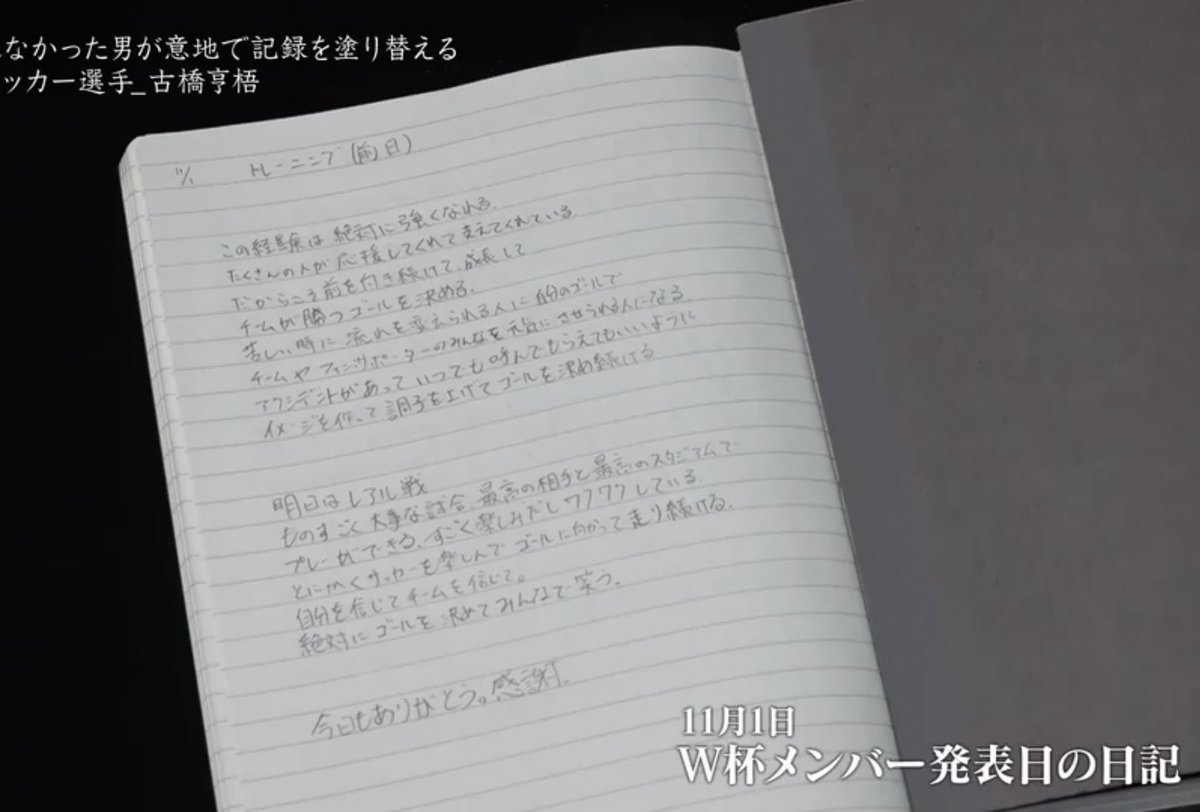 なかった男が意地で記録を塗り替える
ッカー選手_古橋亨梧
11/1 トレーニング(前日)
この経験は絶対に強くなれる。
たくさんの人が応援してくれて支えてくれている。
だからこそ前を付き続けて、成長して
チームが勝つゴールを決める。
苦しい時に流れを変えられる人に自分のゴールで
チームやファン、サポーターのみんなを元気にさせられる人になる
アクシデントがあっていつでも呼んでもらえてもいいように
イメージを作って調子を上げてゴールを決め続ける
明日はレアル戦
ものすごく大事な試合、最高の相手と最高のスタジアムで
プレーができる。すごく楽しみだしワクワクしている。
とにかくサッカーを楽しんでゴールに向かって走り続ける。
自分を信じてチームを信じて。
絶対にゴールを決めてみんなで笑う。
今日もありがとう。感謝。
11月1日
W杯メンバー発表日の日記